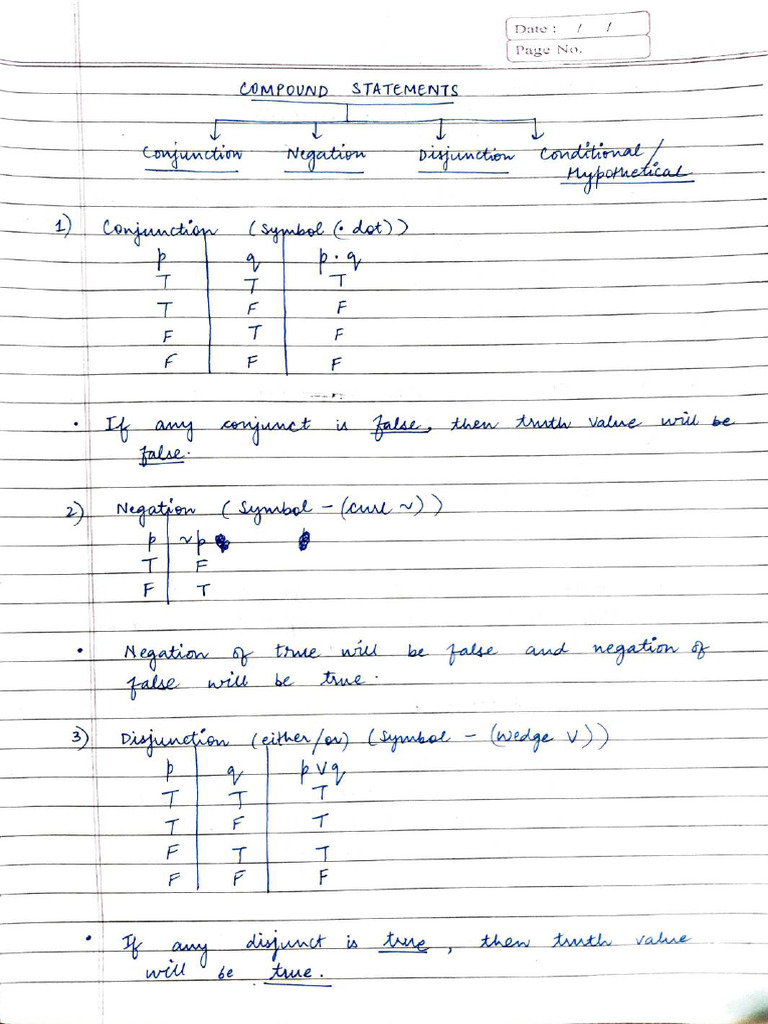 Date : / /
Page No.
COMPOUND STATEMENTS
Conjunction Negation Disjunction Conditional /
Hypothetical
1) Conjunction (Symbol (• dot))
p q p • q
T T T
T F F
F T F
F F F
• If any conjunct is false, then truth value will be
false.
2) Negation (Symbol - (curl ~))
p ~p
T F
F T
• Negation of true will be false and negation of
false will be true.
3) Disjunction (either/or) (Symbol - (wedge V))
p q p V q
T T T
T F T
F T T
F F F
• If any disjunct is true, then truth value
will be true.